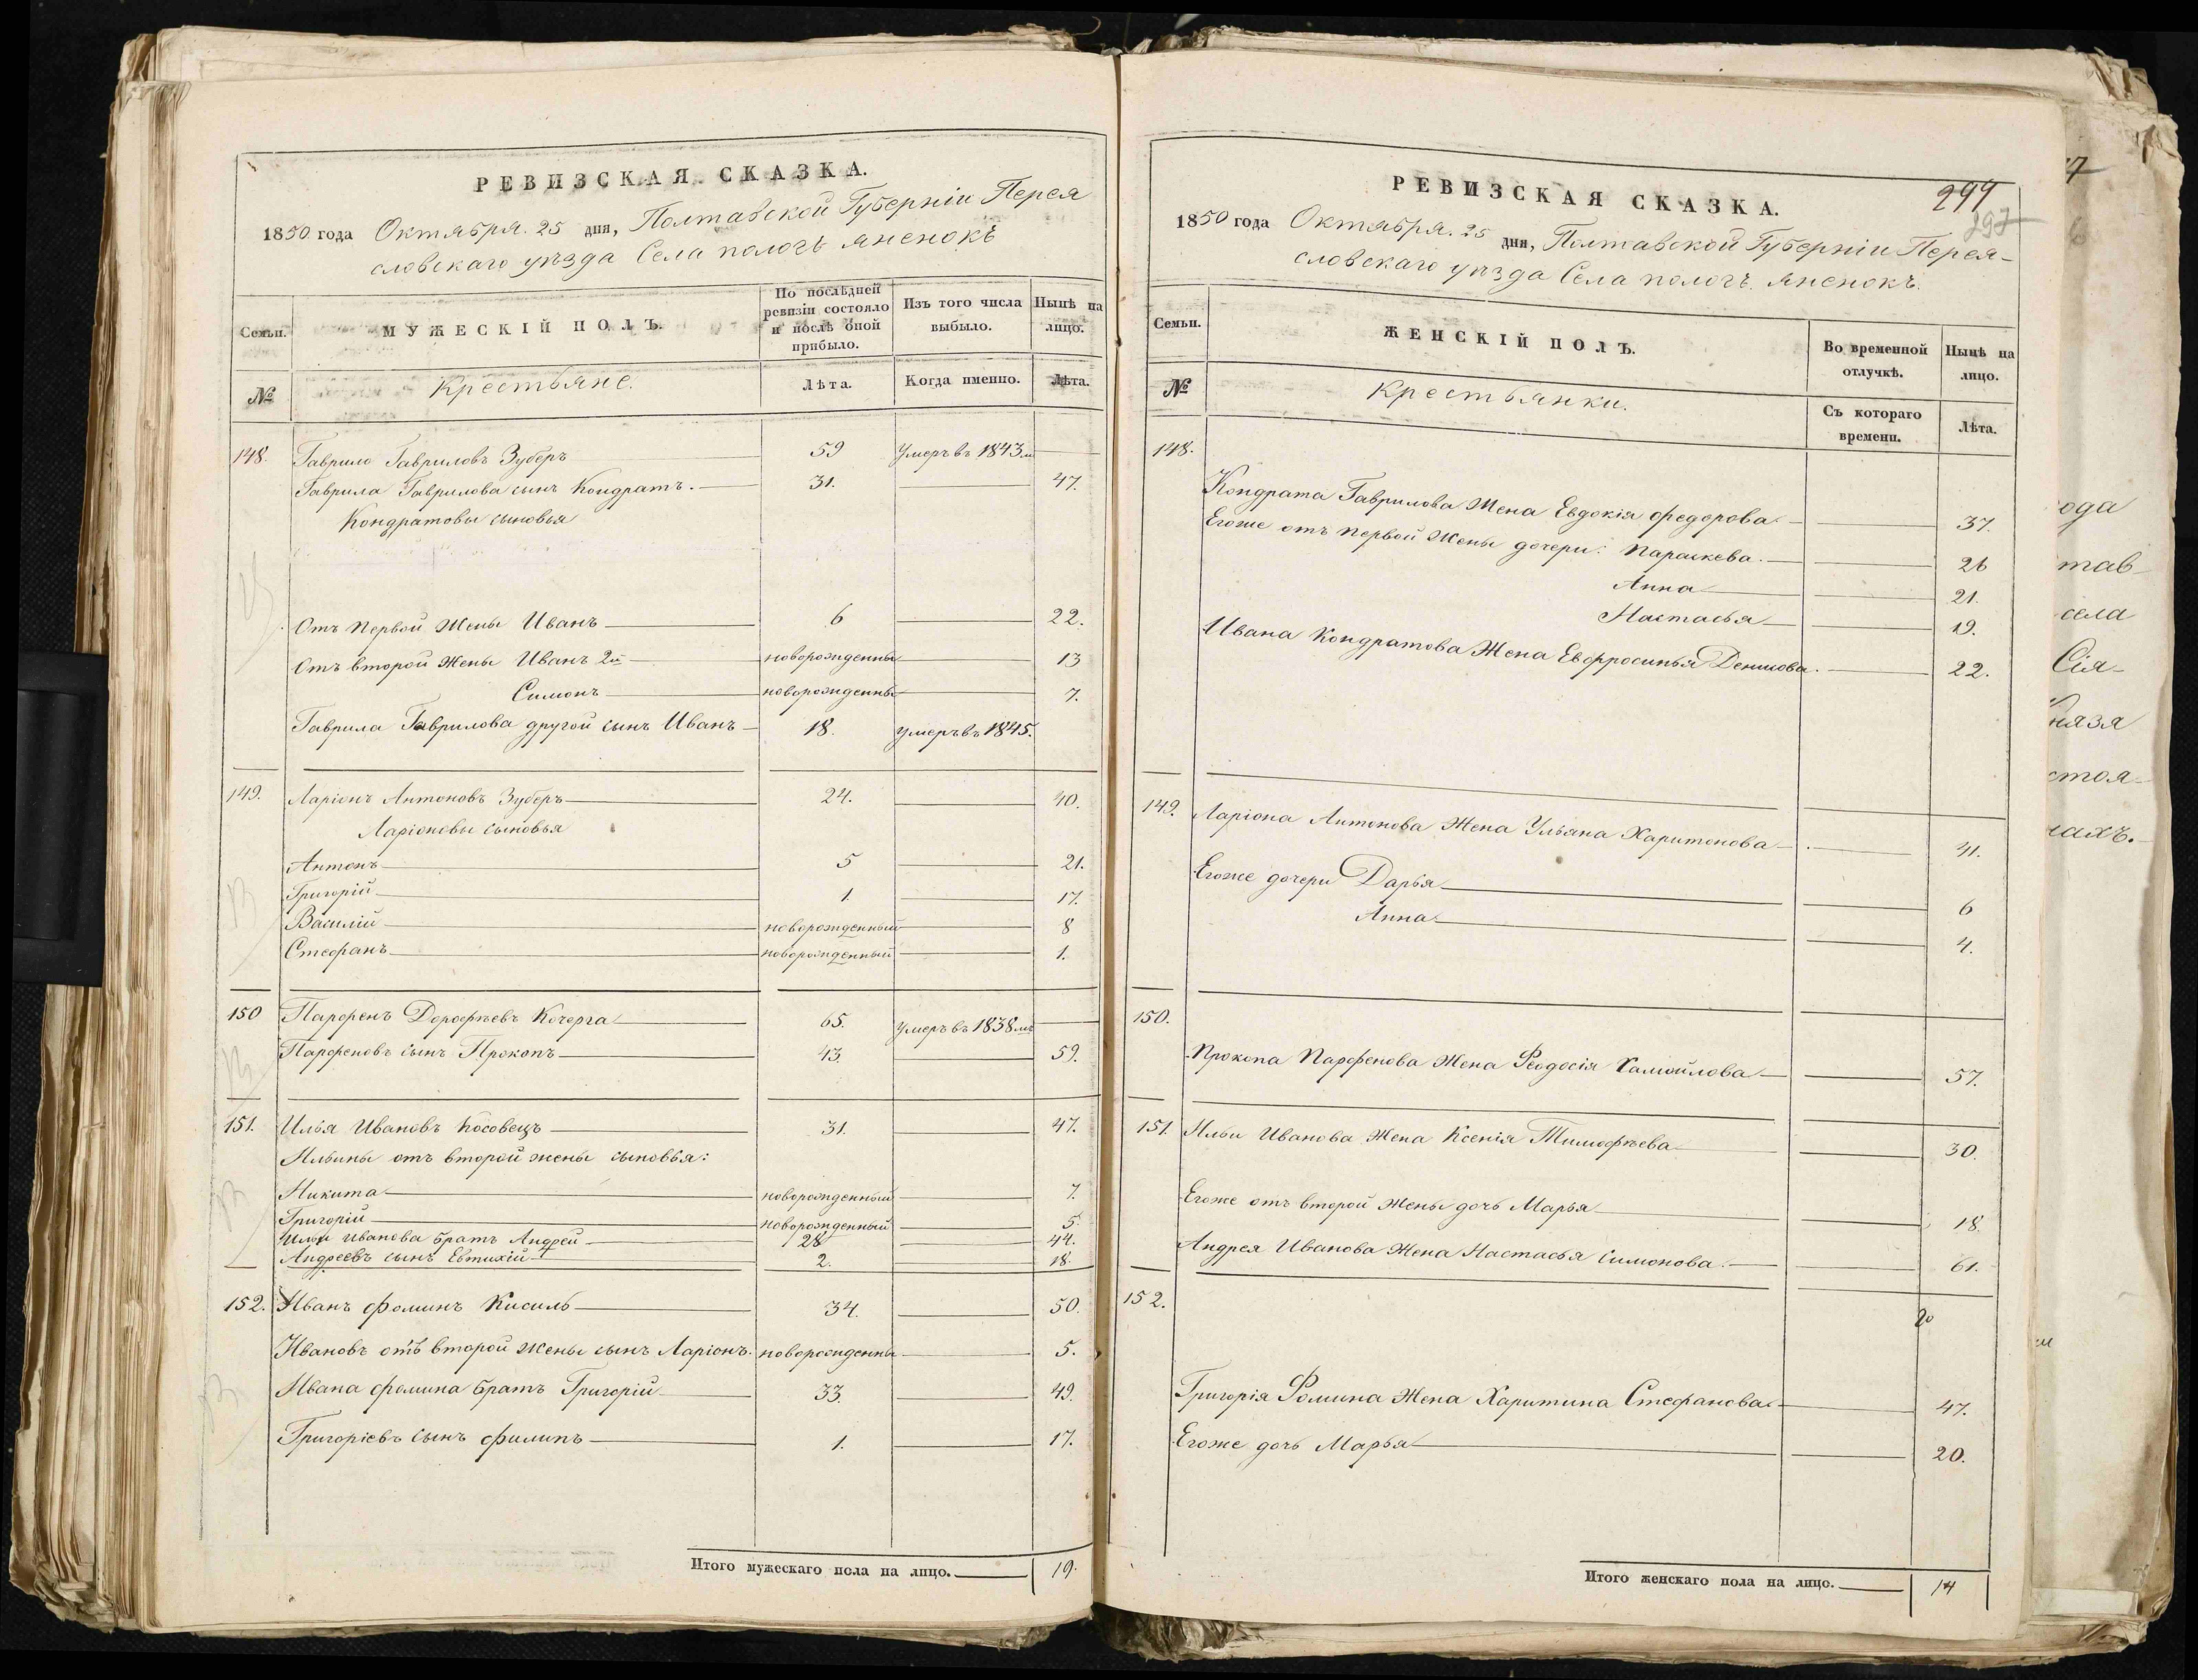 РЕВИЗСКАЯ СКАЗКА.
1850 года Октября. 25 дня, Полтавской Губерніи Перея
словскаго уѣзда Села пологъ яненокъ
Семьи.
МУЖЕСКІЙ ПОЛЪ.
По послѣдней ревизіи состояло и послѣ оной прибыло.
Изъ того числа выбыло.
Нынѣ на лицо.
№
Крестьяне.
Лѣта.
Когда именно.
Лѣта.
148. Гаврило Гавриловъ Зуберъ 59 Умеръ въ 1843м
Гаврила Гаврилова сынъ Кондратъ. 31. 47.
Кондратовы сыновья
Отъ первой жены Иванъ 6 22.
Отъ второй жены Иванъ 2й новорожденны 13
Симонъ новорожденны 7.
Гаврила Гаврилова другой сынъ Иванъ 18. умеръ въ 1845.
149. Ларіонъ Антоновъ Зуберъ 24. 40.
Ларіоновы сыновья
Антонъ 5 21.
Григорій 1. 17.
Василій новорожденный 8
Стефанъ новорожденный 1.
150 Парфенъ Дорофѣевъ Кочерга 65. умеръ въ 1838мъ
Парфеновъ сынъ Прокопъ 43. 59.
151. Илья Ивановъ Косовецъ 31. 47.
Ильины отъ второй жены сыновья:
Никита новорожденный 7.
Григорій новорожденный 5.
Ильи Иванова братъ Андрей 28 44.
Андреевъ сынъ Евтихій 2. 18.
152. Иванъ Фоминъ Кисиль 34. 50.
Ивановъ отъ второй жены сынъ Ларіонъ. новорожденны 5.
Ивана Фомина братъ Григорій 33. 49.
Григоріевъ сынъ Филипъ 1. 17.
Итого мужескаго пола на лицо. 19.
299
297
РЕВИЗСКАЯ СКАЗКА.
1850 года Октября. 25 дня, Полтавской Губерніи Перея-
словскаго уѣзда Села пологъ. яненокъ.
Семьи.
ЖЕНСКІЙ ПОЛЪ.
Во временной отлучкѣ.
Нынѣ на лицо.
№
Крестьянки.
Съ котораго времени.
Лѣта.
148.
Кондрата Гаврилова жена Евдокія Федорова 37.
Егоже отъ первой жены дочери: Параскева. 26
Анна 21.
Настасья 19.
Ивана Кондратова жена Евфросинья Денисова. 22.
149. Ларіона Антонова жена Ульяна Харитонова 41.
Егоже дочери Дарья 6
Анна 4.
150.
Прокопа Парфенова жена Феодосія Самойлова 57.
151. Ильи Иванова жена Ксенія Тимофѣева 30.
Егоже отъ второй жены дочь Марья 18.
Андрея Иванова жена Настасья Симонова. 61.
152.
Григорія Фомина жена Харитина Стефанова 47.
Егоже дочь Марья 20.
Итого женскаго пола на лицо. 14
7
ода
тав-
села
Сія-
нязя
стоя-
лахъ.